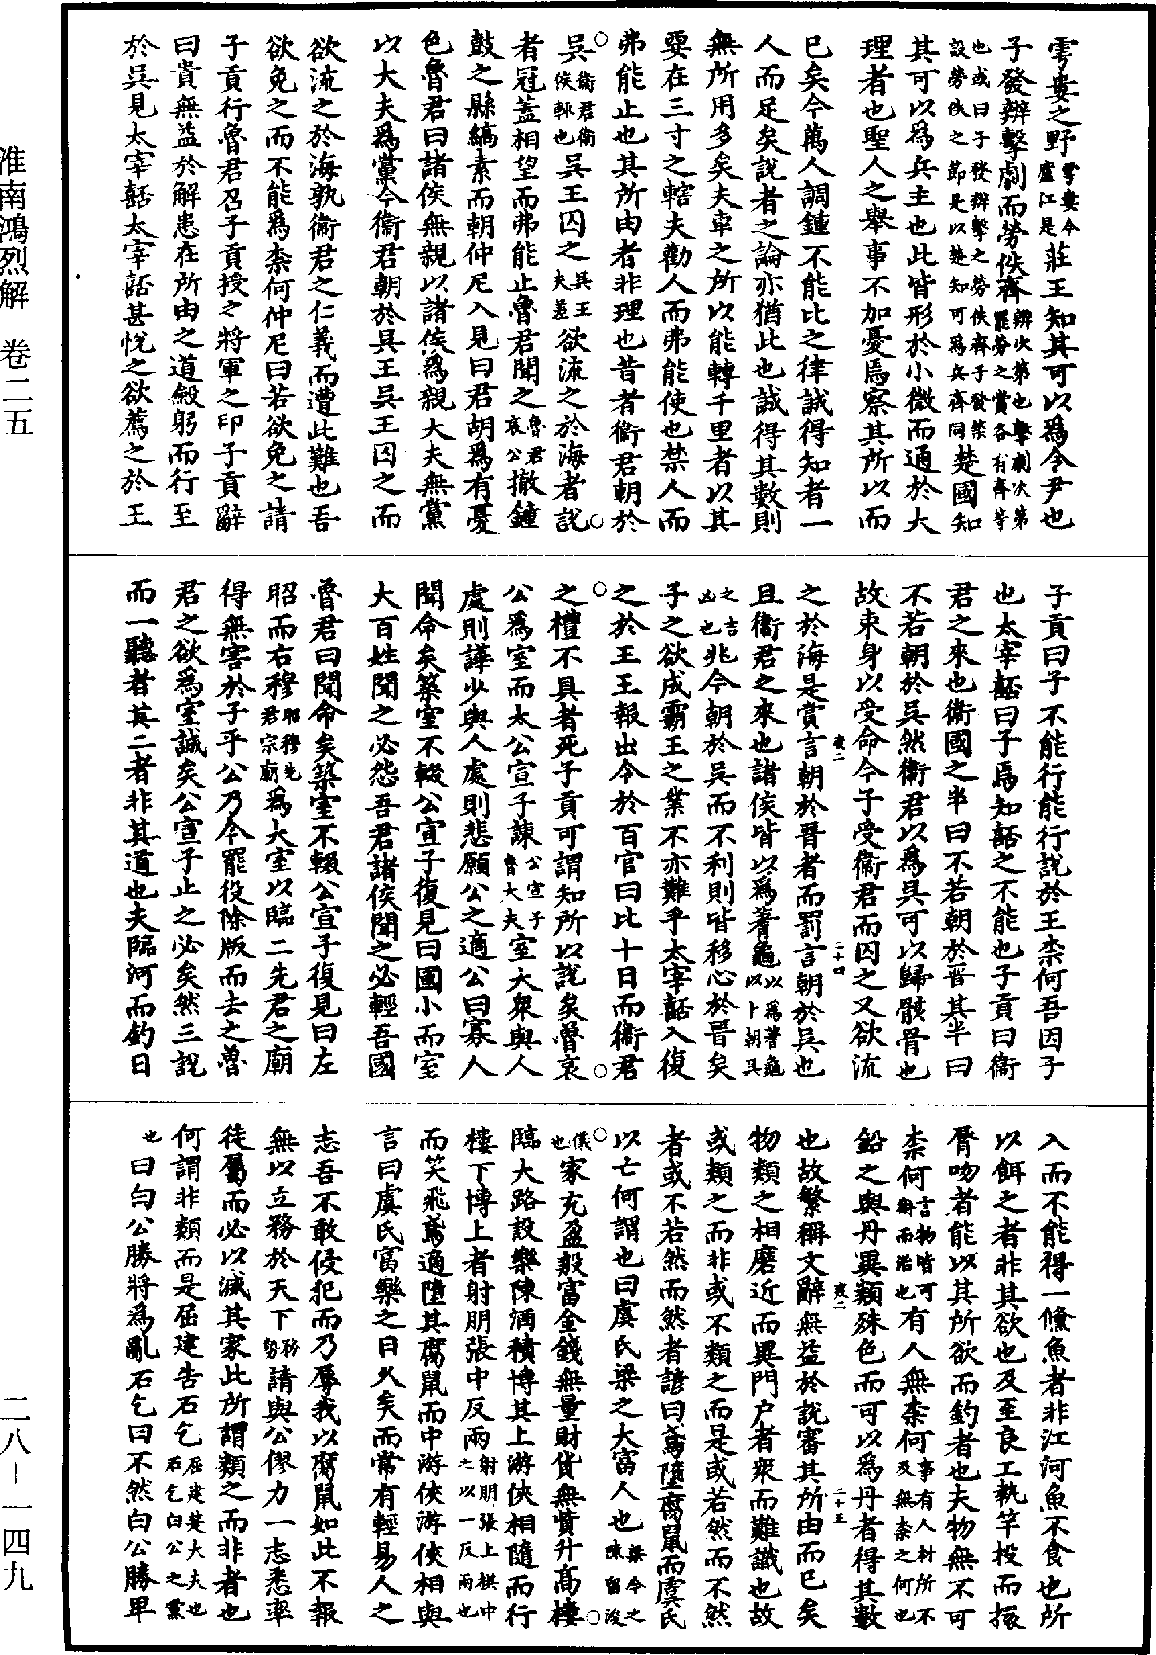 雩婁之野雩婁今廬江是莊王知其可以爲令尹也
子發辨擊劇而勞佚齊辨次第也擊劇次第罷勞之賞各有齊等
也或曰子發辨擊之勞佚齊子發築設勞佚之節是以楚知可爲兵齊同楚國知
其可以爲兵主也此皆形於小微而通於大
理者也聖人之舉事不加憂焉察其所以而
已矣今萬人調鍾不能比之律誠得知者一
人而足矣說者之論亦猶此也誠得其數則
無所用多矣夫車之所以能轉千里者以其
要在三寸之轄夫勸人而弗能使也禁人而
弗能止也其所由者非理也昔者衞君朝於
吳衞君衞侯輒也吳王囚之吳王夫差欲流之於海者說
者冠蓋相望而弗能止魯君聞之魯君哀公撤鍾
鼓之縣縞素而朝仲尼入見曰君胡爲有憂
色魯君曰諸侯無親以諸侯爲親大夫無黨
以大夫爲黨今衞君朝於吳王吳王囚之而
欲流之於海孰衞君之仁義而遭此難也吾
欲免之而不能爲柰何仲尼曰若欲免之請
子貢行魯君召子貢授之將軍之印子貢辭
曰貴無益於解患在所由之道斂躬而行至
於吳見太宰嚭太宰嚭甚悅之欲薦之於王
子貢曰子不能行能行說於王柰何吾因子
也太宰嚭曰子焉知嚭之不能也子貢曰衞
君之來也衞國之半曰不若朝於晉其半曰
不若朝於吳然衞君以爲吳可以歸骸骨也
故束身以受命今子受衞君而囚之又欲流
之於海是賞言朝於晉者而罰言朝於吳也
且衞君之來也諸侯皆以爲蓍龜以爲蓍龜以卜朝吳
之吉凶也兆今朝於吳而不利則皆移心於晉矣
子之欲成霸王之業不亦難乎太宰嚭入復
之於王王報出令於百官曰比十日而衞君
之禮不具者死子貢可謂知所以說矣魯哀
公爲室而太公宣子諫公宣子魯大夫室大衆與人
處則譁少與人處則悲願公之適公曰寡人
聞命矣築室不輟公宣子復見曰國小而室
大百姓聞之必怨吾君諸侯聞之必輕吾國
魯君曰聞命矣築室不輟公宣子復見曰左
昭而右穆昭穆先君宗廟爲大室以臨二先君之廟
得無害於子乎公乃令罷役除版而去之魯
君之欲爲室誠矣公宣子止之必矣然三說
而一聽者其二者非其道也夫臨河而釣日
入而不能得一鯈魚者非江河魚不食也所
以餌之者非其欲也及至良工執竿投而擐
脣吻者能以其所欲而釣者也夫物無不可
柰何言物皆可術而治也有人無柰何事有人材所不及無柰之何也
鉛之與丹異類殊色而可以爲丹者得其數
也故繁稱文辭無益於說審其所由而已矣
物類之相磨近而異門户者衆而難識也故
或類之而非或不類之而是或若然而不然
者或不若然而然者諺曰鳶墮腐鼠而虞氏
以亡何謂也曰虞氏梁之大富人也梁今之陳留浚
儀也家充盈殷富金錢無量財貨無貲升高樓
臨大路設樂陳酒積博其上游俠相隨而行
樓下博上者射朋張中反兩射朋張上棋中之以一反兩也
而笑飛鳶適墮其腐鼠而中游俠游俠相與
言曰虞氏富樂之日久矣而常有輕易人之
志吾不敢侵犯而乃辱我以腐鼠如此不報
無以立務於天下務勢請與公僇力一志悉率
徒屬而必以滅其家此所謂類之而非者也
何謂非類而是屈建告石乞屈建楚大夫也石乞白公之黨
也曰白公勝將爲亂石乞曰不然白公勝卑
淮南鴻烈解 卷二五
二八-一四九